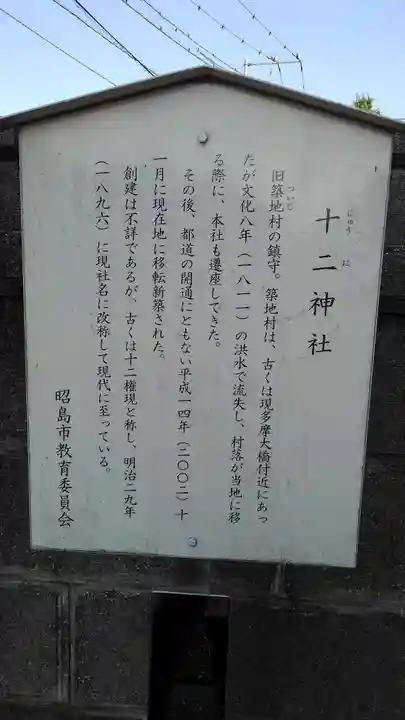 十二神社
じゅうに
旧築地村の鎮守。築地村は、古くは現多摩大橋付近にあっ
ついじ
たが文化八年（一八一一）の洪水で流失し、村落が当地に移
る際に、本社も遷座してきた。
その後、都道の開通にともない平成一四年（二〇〇二）十
一月に現在地に移転新築された。
創建は不詳であるが、古くは十二権現と称し、明治二九年
（一八九六）に現社名に改称して現代に至っている。
昭島市教育委員会